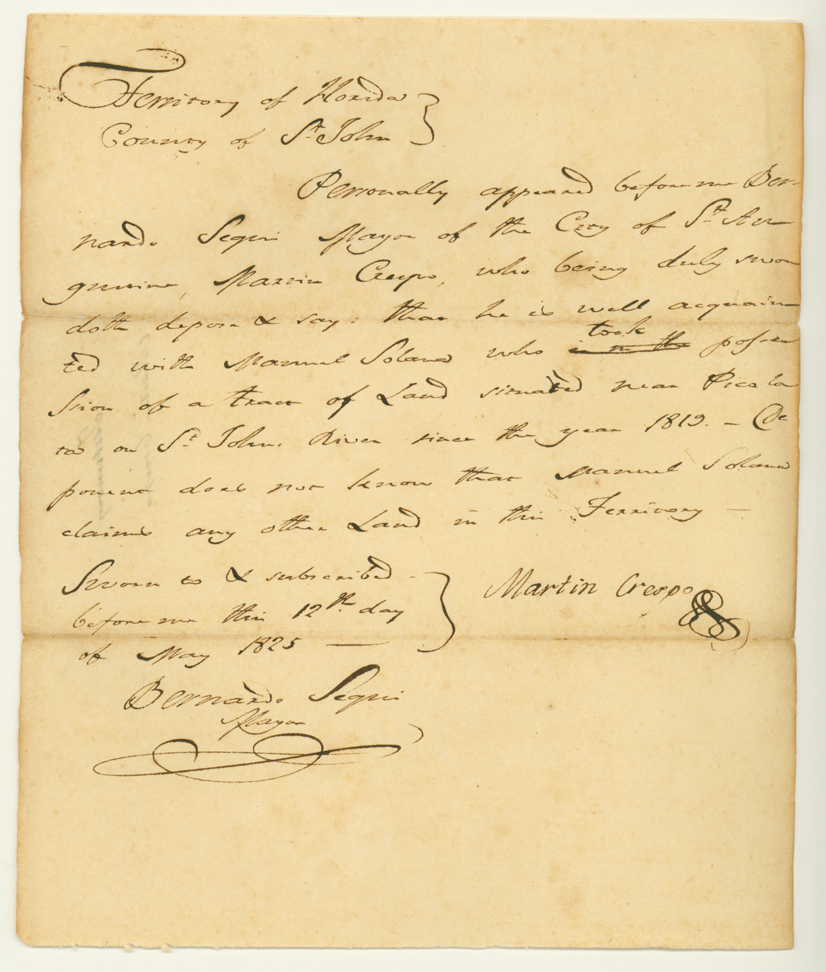 Territory of Florida }
County of St John
Personally appeared before me Ber-
nardo Segui Mayor of the City of St Au
gustine, Martin Crespo, who being duly sworn
doth depose & say: that he is well acquain
ted with Manuel Solana who took in the posses
sion of a tract of Land situated near Picola
ta on St Johns River since the year 1819. – De
ponent does not know that Manuel Solana
claims any other Land in this Territory –
Sworn to & subscribed
before me this 12th day
of May 1825 —
Martin Crespo
Bernardo Segui
Mayor